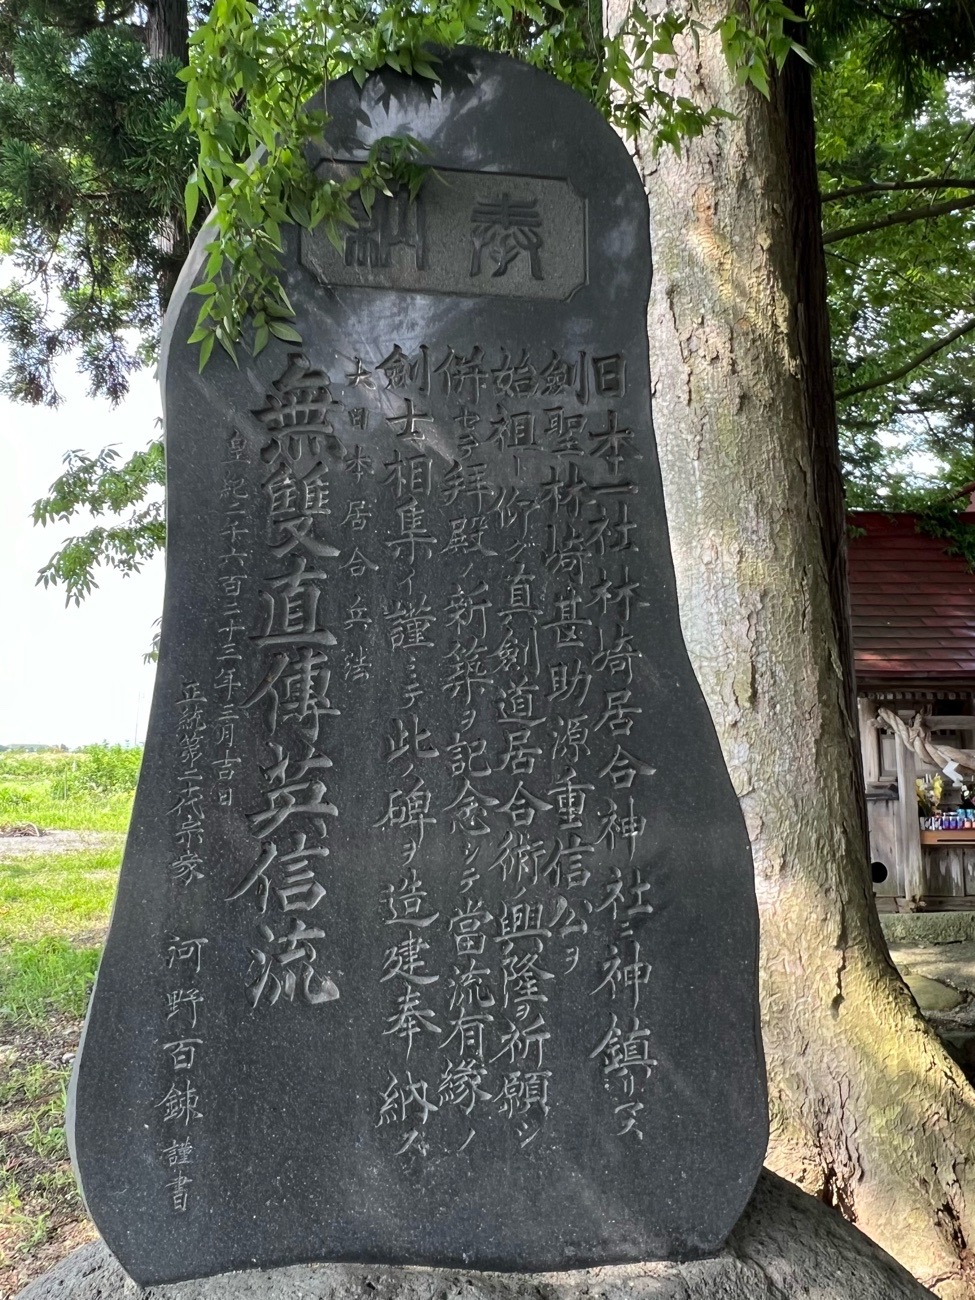 奉納
日本一社林崎居合神社ニ神鎮リマス
劍聖林崎甚助源重信公ヲ
始祖ト仰グ真劍道居合術ノ興隆ヲ祈願シ
併セテ拜殿ノ新築ヲ記念シテ當流有縁ノ
劍士相集イ謹ミテ此ノ碑ヲ造建奉納ス
大日本居合兵法
無雙直傳英信流
皇紀二千六百二十三年三月吉日
正統第二十代宗家 河野百錬 謹書